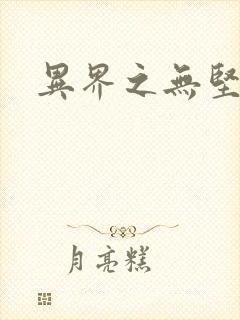 異界之無堅
月亮糕